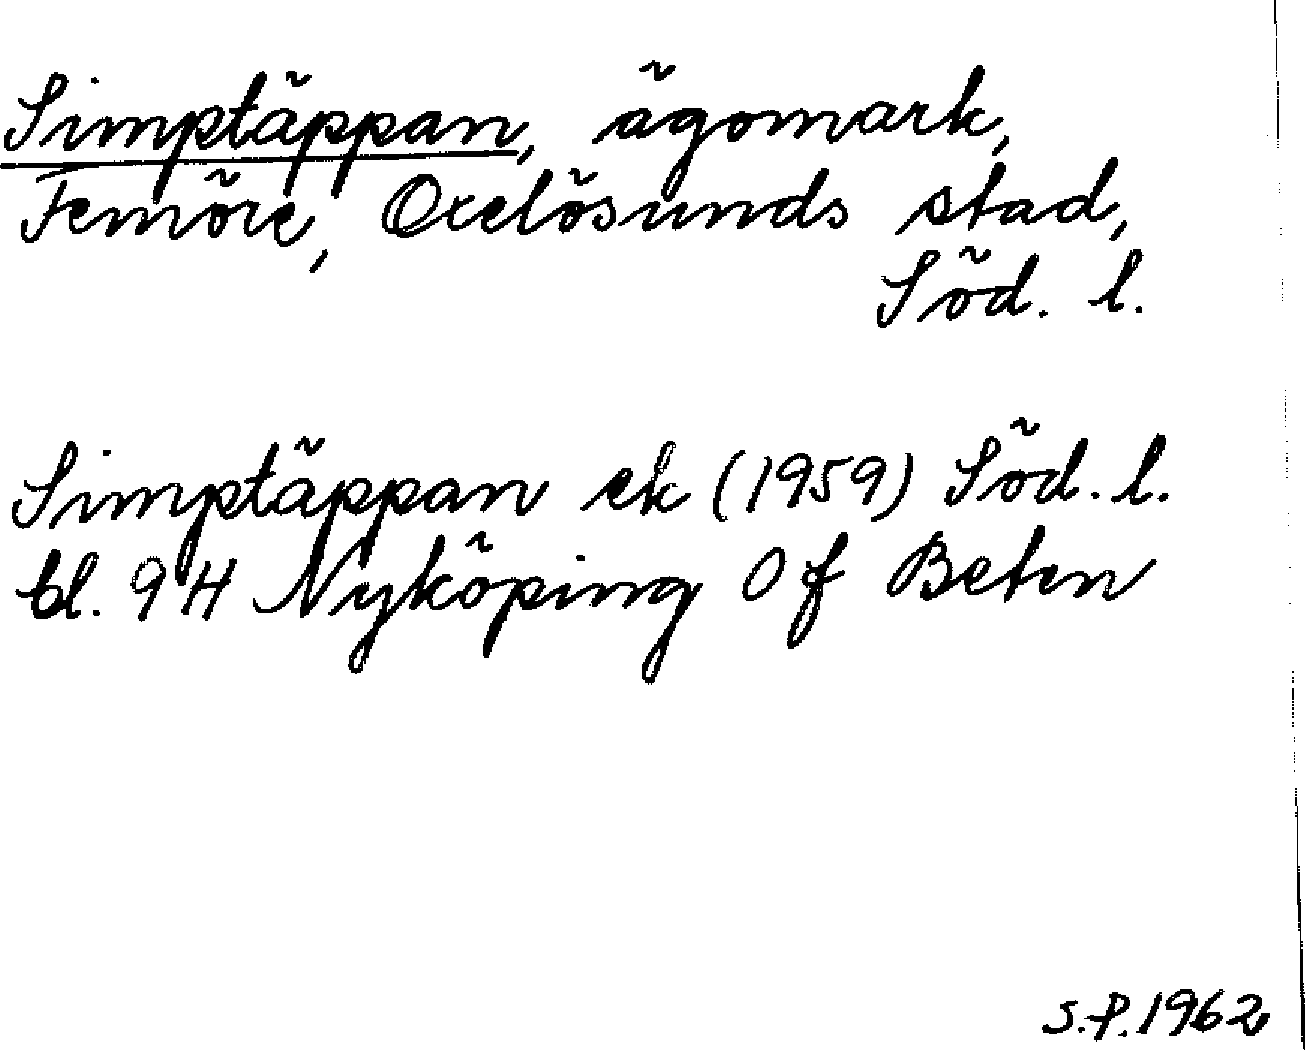 Simptäppan, ägomark,
Femöre, Oxelösunds stad,
Söd. l.
Simptäppan ek (1959) Söd. l.
bl. 9H Nyköping Of Beten
S.P. 1962